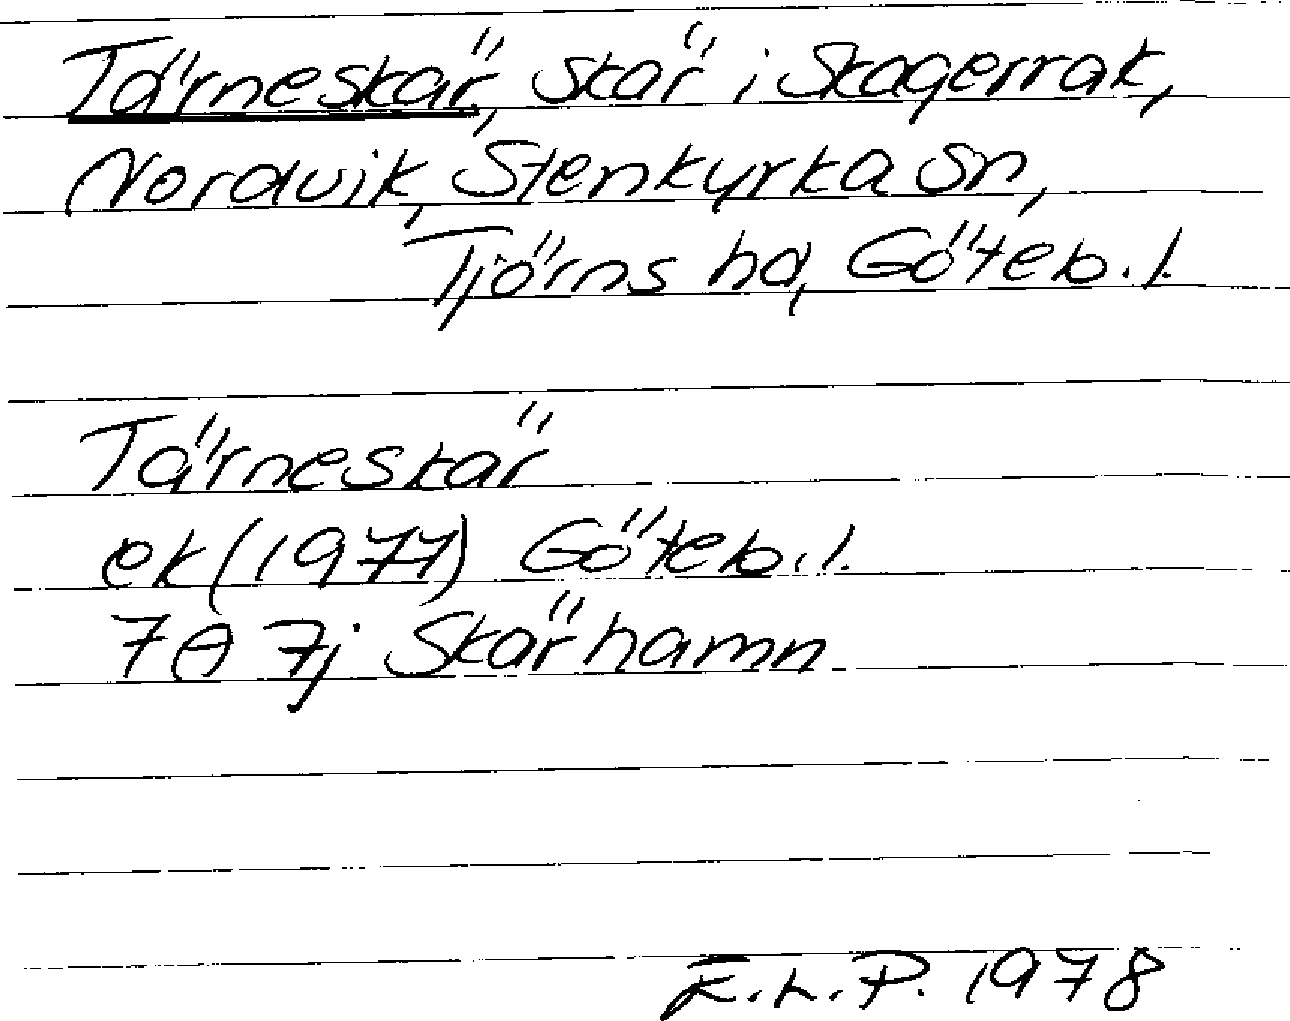 Tärneskär, skär i Skagerrak,
Nordvik, Stenkyrka sn,
Tjörns hd, Göteb.l.
Tärneskär
ek (1977) Göteb.l.
7A 7j Skärhamn
E.L.P. 1978